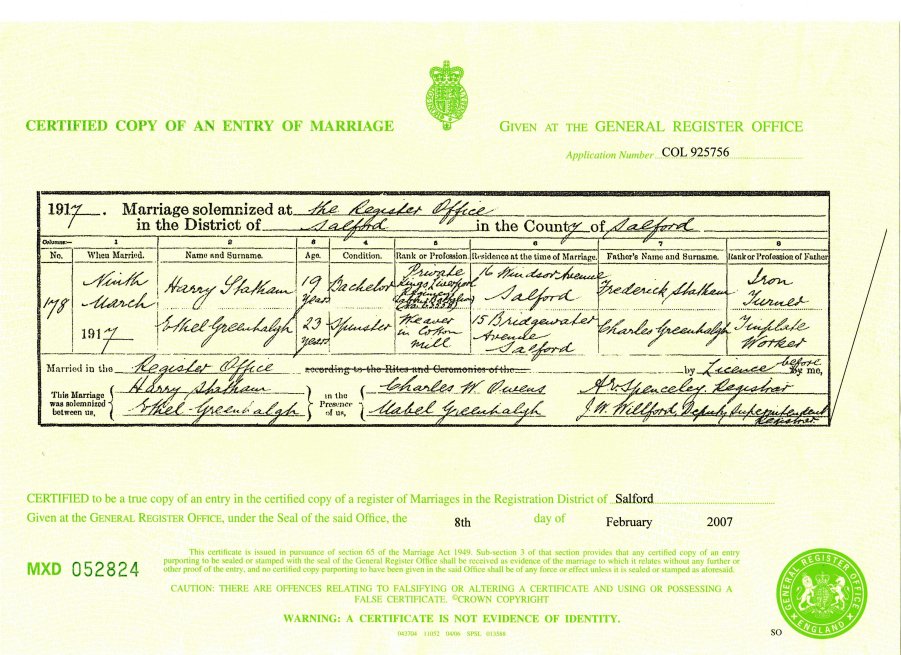 CERTIFIED COPY OF AN ENTRY OF MARRIAGE
GIVEN AT THE GENERAL REGISTER OFFICE
Application Number COL 925756
1917. Marriage solemnized at the Register Office
in the District of Salford in the County of Salford
Columns:— 1 2 3 4 5 6 7 8
No. When Married. Name and Surname. Age. Condition. Rank or Profession. Residence at the time of Marriage. Father's Name and Surname. Rank or Profession of Father
178 Ninth March 1917
Harry Statham 19 years Bachelor Private Kings Liverpool 16 Windsor Avenue Salford Frederick Statham Iron Turner
Ethel Greenhalgh 23 years Spinster Weaver in Cotton Mill 15 Bridgewater Avenue Salford Charles Greenhalgh Tinplate Worker
Married in the Register Office according to the Rites and Ceremonies of the by Licence before by me,
This Marriage was solemnized between us,
Harry Statham
Ethel Greenhalgh
in the Presence of us,
Charles W. Owens
Mabel Greenhalgh
Spenceley. Registrar
J. W. Willford, Deputy Superintendent Registrar
CERTIFIED to be a true copy of an entry in the certified copy of a register of Marriages in the Registration District of Salford
Given at the GENERAL REGISTER OFFICE, under the Seal of the said Office, the 8th day of February 2007
MXD 052824
This certificate is issued in pursuance of section 65 of the Marriage Act 1949. Sub-section 3 of that section provides that any certified copy of an entry
purporting to be sealed or stamped with the seal of the General Register Office shall be received as evidence of the marriage to which it relates without any further or
other proof of the entry, and no certified copy purporting to have been given in the said Office shall be of any force or effect unless it is sealed or stamped as aforesaid.
CAUTION: THERE ARE OFFENCES RELATING TO FALSIFYING OR ALTERING A CERTIFICATE AND USING OR POSSESSING A
FALSE CERTIFICATE. ©CROWN COPYRIGHT
WARNING: A CERTIFICATE IS NOT EVIDENCE OF IDENTITY.
042704 11052 04/06 SPSL 013568
SO
GENERAL REGISTER OFFICE
ENGLAND